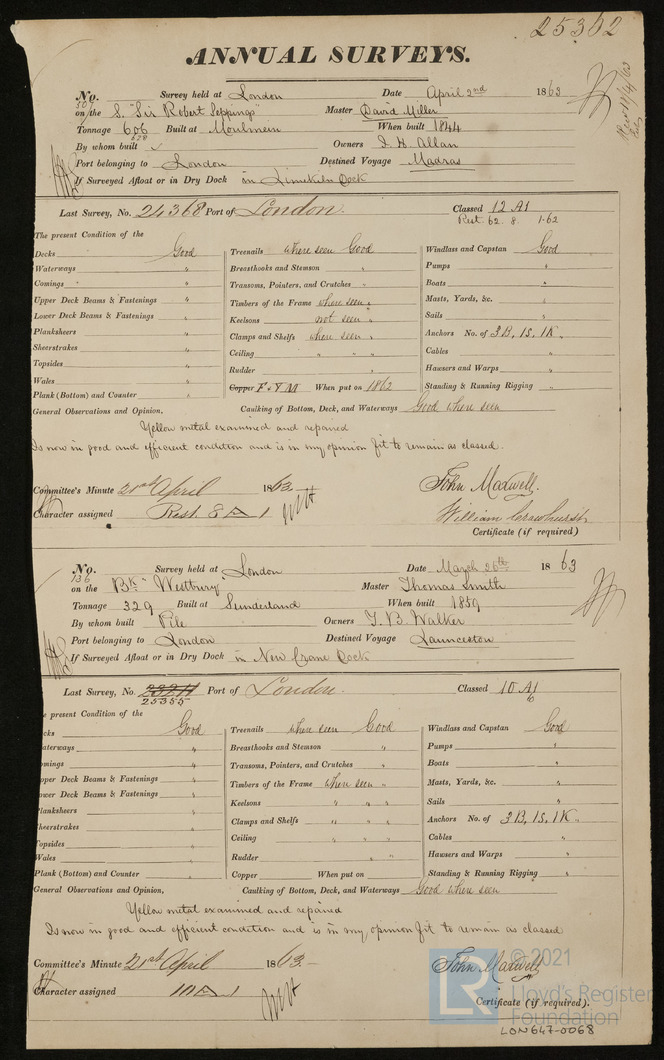 25302
ANNUAL SURVEYS.
No. 507 Survey held at London Date April 2nd 1863
on the S. "Sir Robert Seppings" Master David Miller
Tonnage 606 Built at Moulmein When built 1844
628
By whom built ✓ Owners J. H. Allan
Port belonging to London Destined Voyage Madras
If Surveyed Afloat or in Dry Dock in Limekiln Dock
Last Survey, No. 24368 Port of London. Classed 12 A1
Rest. 62. 8. 1.62
The present Condition of the
Decks Good Treenails where seen Good Windlass and Capstan Good
Waterways " Breasthooks and Stemson " Pumps "
Comings " Transoms, Pointers, and Crutches " Boats "
Upper Deck Beams & Fastenings " Timbers of the Frame where seen " Masts, Yards, &c. "
Lower Deck Beams & Fastenings " Keelsons not seen " Sails "
Planksheers " Clamps and Shelfs where seen " Anchors No. of 3B, 1S, 1K "
Sheerstrakes " Ceiling " " " Cables "
Topsides " Rudder " Hawsers and Warps "
Wales " Copper F & YM When put on 1862 Standing & Running Rigging "
Plank (Bottom) and Counter "
General Observations and Opinion, Caulking of Bottom, Deck, and Waterways Good where seen
Yellow metal examined and repaired
Is now in good and efficient condition and is in my opinion fit to remain as classed.
Committee's Minute 21st April 1863. John Maxwell.
Character assigned Rest. 8 A 1 William Crawhurst
Certificate (if required)
No. 136 Survey held at London Date March 26th 1863
on the Bk "Westbury" Master Thomas Smith
Tonnage 329 Built at Sunderland When built 1859
By whom built Pile Owners T. B. Walker
Port belonging to London Destined Voyage Launceston
If Surveyed Afloat or in Dry Dock in New Crane Dock
Last Survey, No. Port of London. Classed 10 A1
25355 6
e present Condition of the
cks Good Treenails where seen Good Windlass and Capstan Good
aterways " Breasthooks and Stemson " Pumps "
omings " Transoms, Pointers, and Crutches " Boats "
pper Deck Beams & Fastenings " Timbers of the Frame where seen " Masts, Yards, &c. "
ower Deck Beams & Fastenings " Keelsons " " " Sails "
lanksheers " Clamps and Shelfs " " " Anchors No. of 3B, 1S, 1K "
heerstrakes " Ceiling " " " Cables "
Topsides " Rudder " " Hawsers and Warps "
Wales " Copper When put on Standing & Running Rigging "
Plank (Bottom) and Counter "
General Observations and Opinion, Caulking of Bottom, Deck, and Waterways Good where seen
Yellow metal examined and repaired
Is now in good and efficient condition and is in my opinion fit to remain as classed
Committee's Minute 21st April 1863.- John Maxwell
Character assigned 10 A 1
Certificate (if required).
LR © 2021
Lloyd's Register
Foundation
LON647-0068